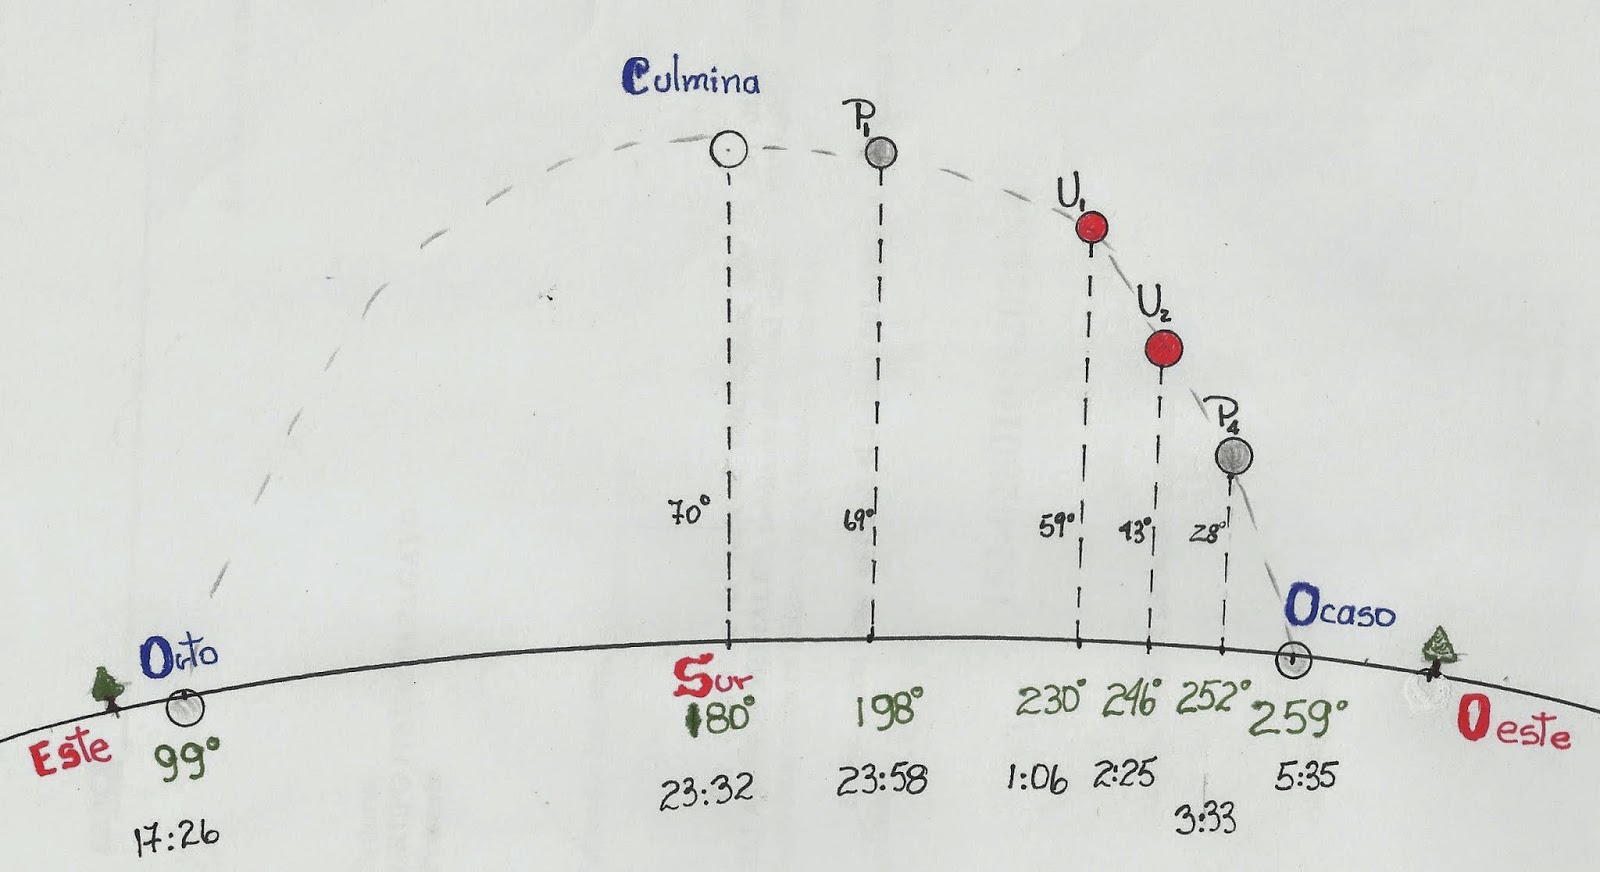 Culmina
P₁
U₁
U₂
P₄
70°
69°
59°
43°
28°
Orto
Ocaso
Este
Sur
Oeste
99°
180°
198°
230°
246°
252°
259°
17:26
23:32
23:58
1:06
2:25
3:33
5:35